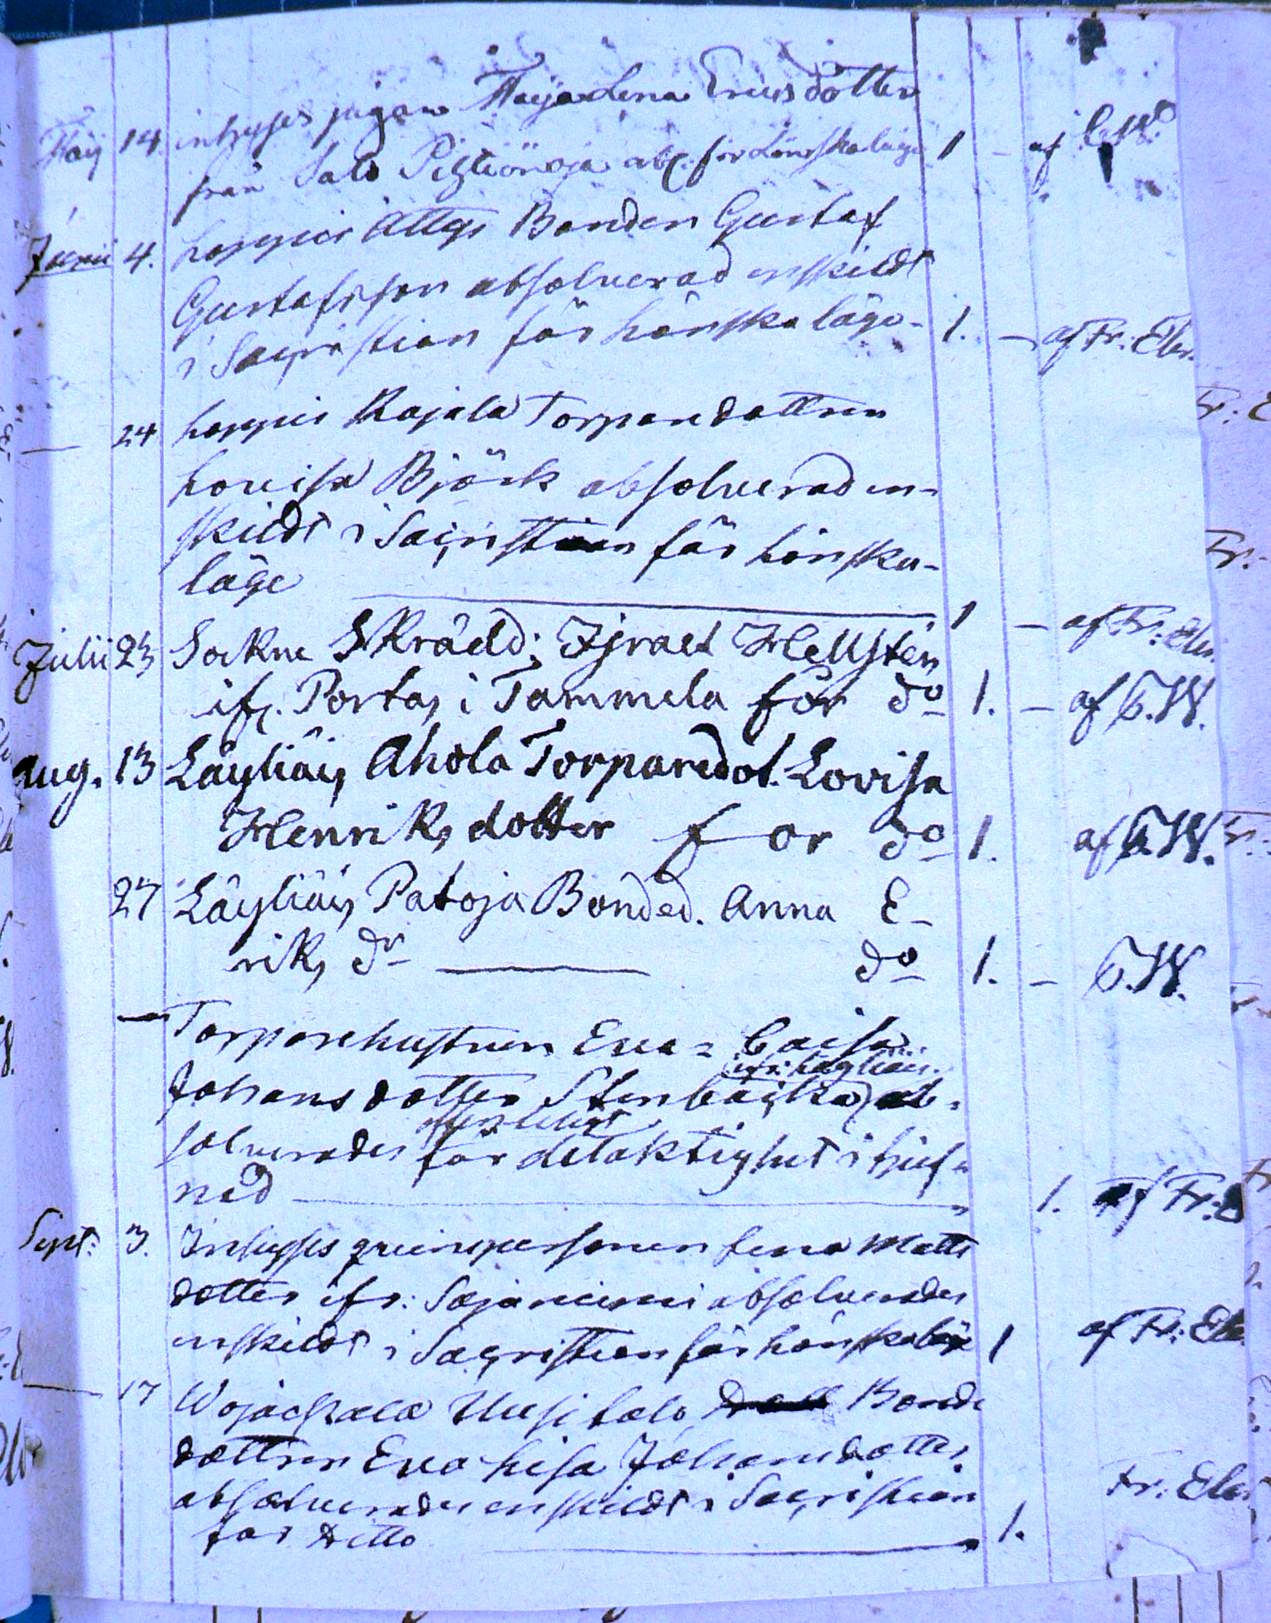 Maij 14. inhyses pigan Maja Lena Ericsdotter
från Salo Pistiönoja abs. för Lönskaläge 1 - af C.W.
Junii 4. Loppis Attgs Bonden Gustaf
Gustafsson absolverad enskildt
i Sacristian för lönskaläge - 1. - af Fr: Ehr.
— 24 Loppis Rajala Torparedottren
Lovisa Björk absolverad en-
skildt i Sacristian för lönska-
läge 1 - af Fr: Ehr.
Julii 23 Sockne Skrädd: Israel Hellstén
ifr. Portas i Tammela för do 1. - af C.W.
Aug. 13 Läyliäis Ahola Torparedot. Lovisa
Henriks dotter för do 1. af C.W.
27 Läyliäis Patoja Bonded. Anna E-
riks dr — do 1. - C.W.
— Torparehustrun Eva = Caisa
ifr: Läyliäis.
Johansdotter Stenbacka ab-
solverades för delaktighet i tjuf-
nad — 1. af Fr: E
Sept: 3. Inhyses qvinspersonen Lena Matts
dotter ifr: Sajaniemi absolverades
enskildt i Sacristian för lönskaläge 1 af Fr: Ehr
— 17 Wojackala Uusitalo Bonde
dottren Eva Lisa Johansdotter
absolverades enskildt i Sacristian
för ditto — 1. Fr: Ehr